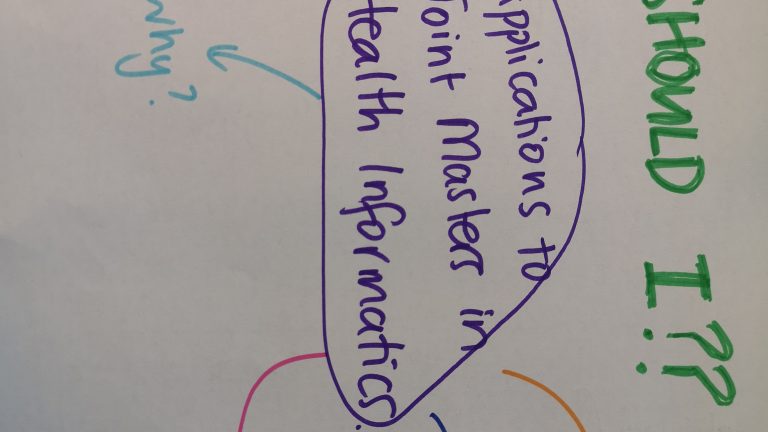 SHOULD I??
Applications to
Joint Masters in
Health Informatics.
why?